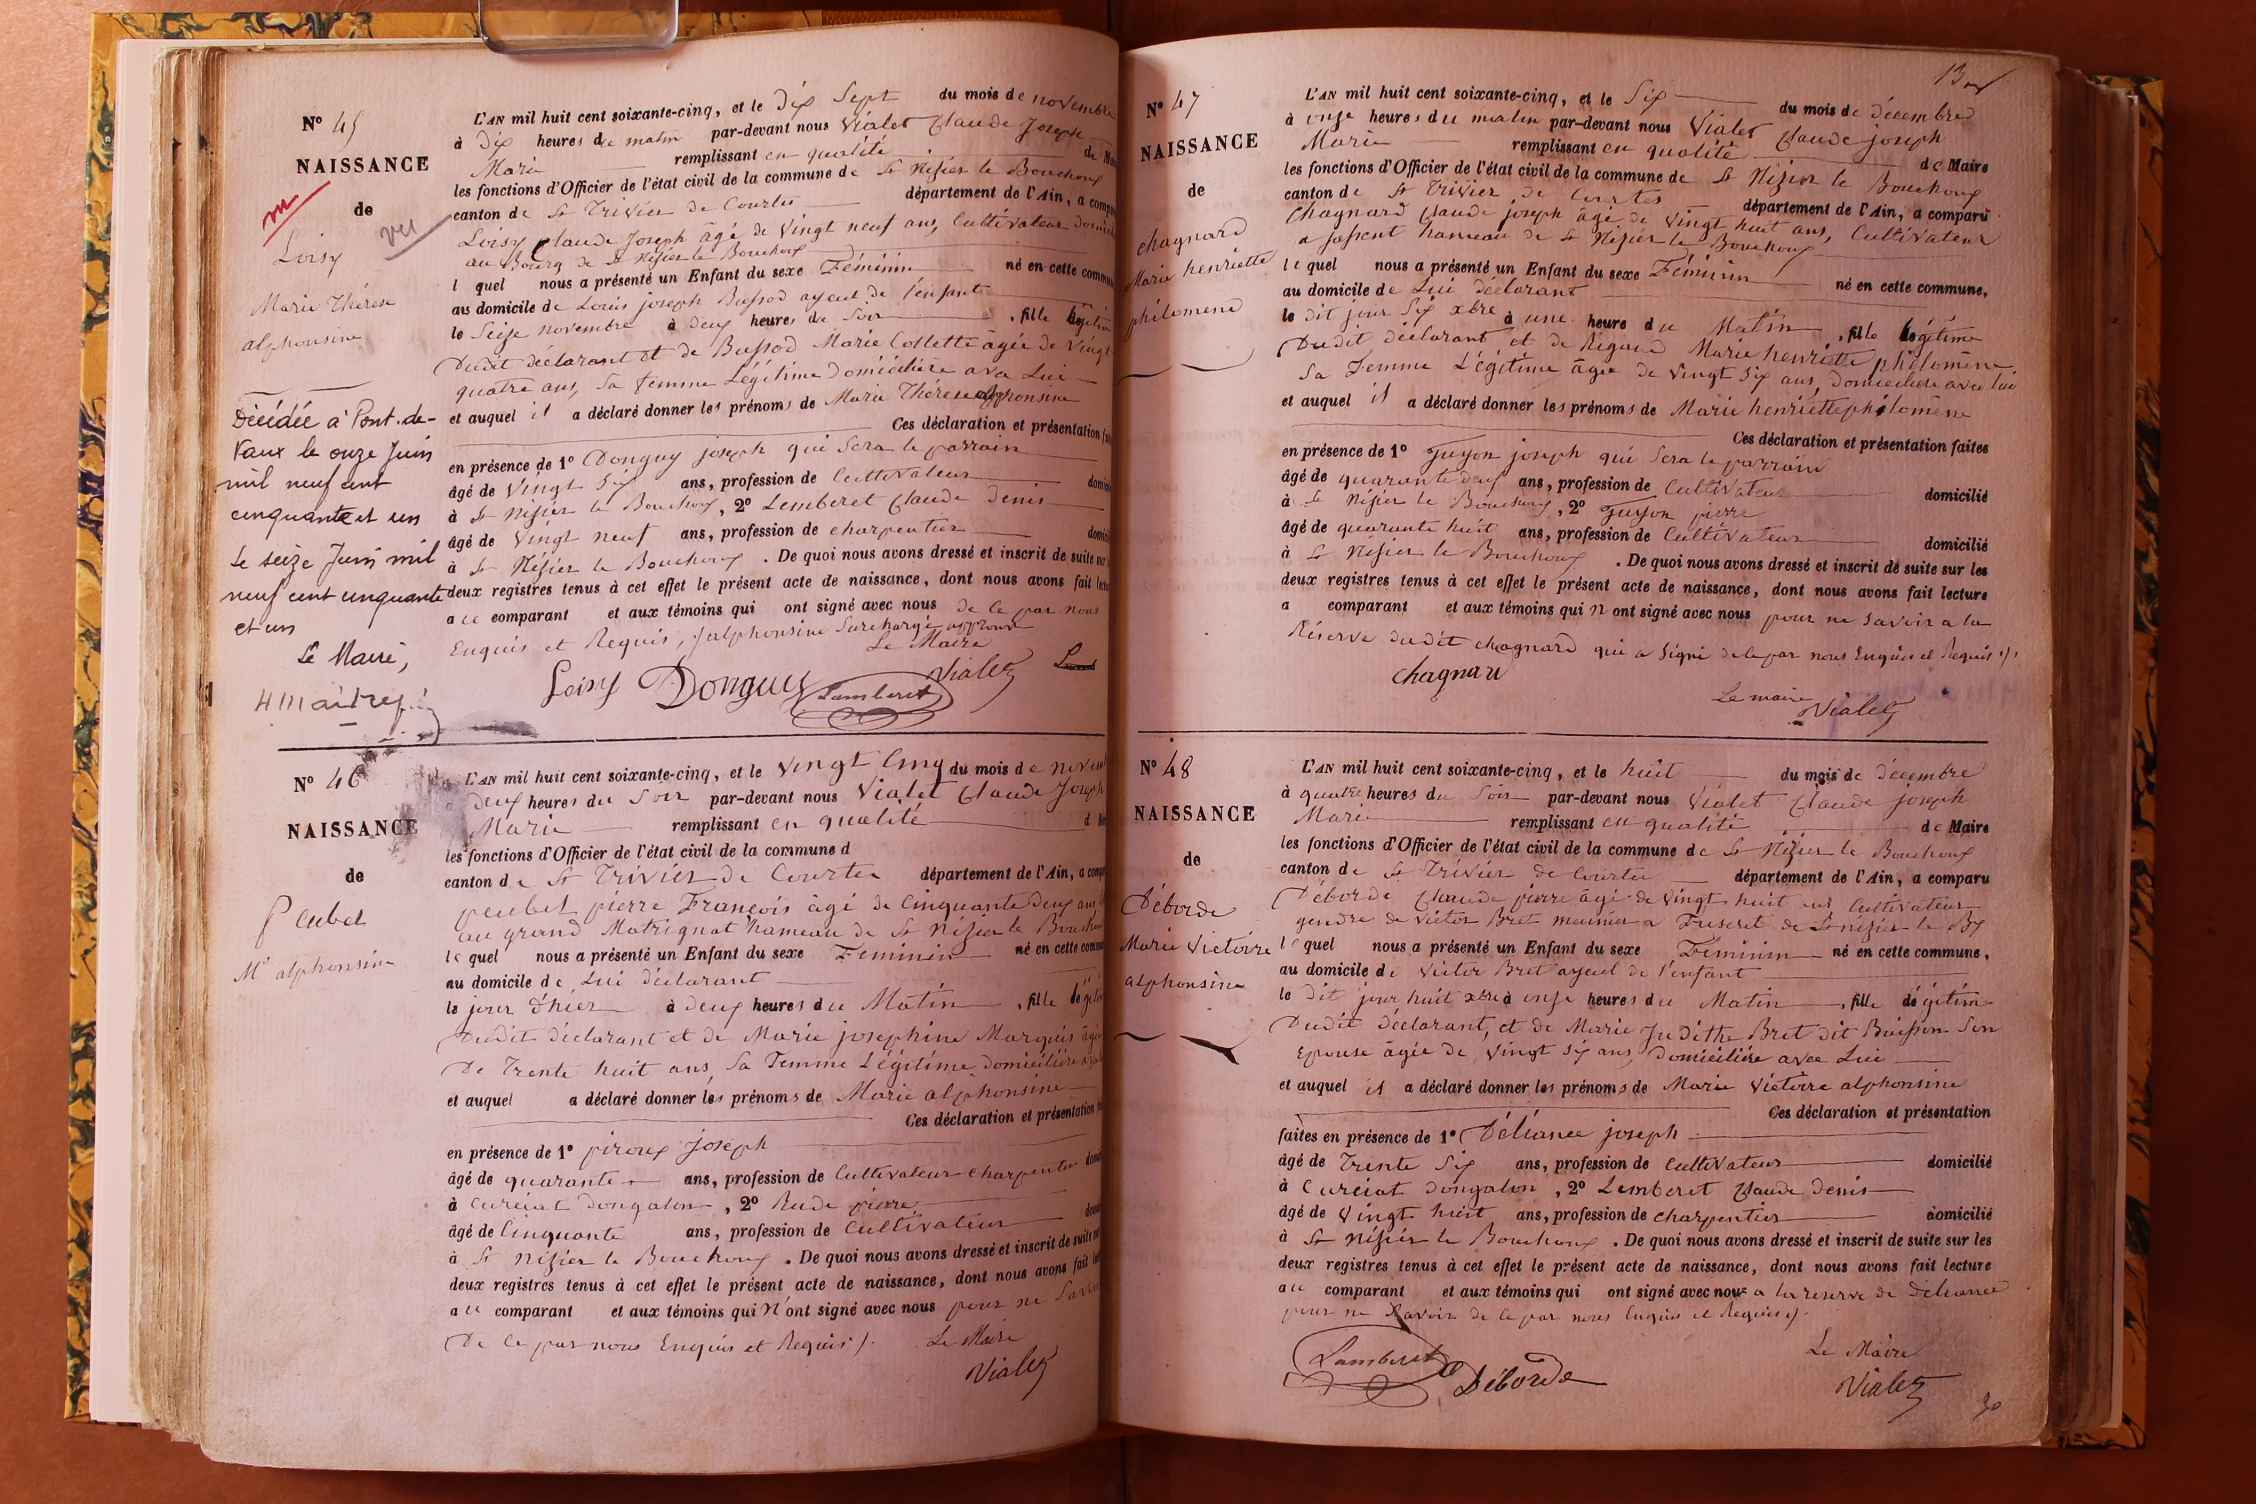 N° 45
NAISSANCE
de
m
vu
Loisy
Marie Thérèse
alphonsine
Décédée à Pont-de-
Vaux le onze Juin
mil neuf cent
cinquante et un
Le seize Juin mil
neuf cent cinquante
et un
Le Maire,
L'AN mil huit cent soixante-cinq, et le Dix Sept du mois de novembre
à Dix heures du matin par-devant nous Vialet Claude Joseph
Marie remplissant en qualité de
les fonctions d'Officier de l'état civil de la commune de St Nizier le Bouchoux
canton de St Trivier de Courtes département de l'Ain, a
Loisy Claude Joseph âgé de Vingt neuf ans, Cultivateur
au Bourg de St Nizier le Bouchoux
l quel nous a présenté un Enfant du sexe Féminin né en cette
au domicile de Louis joseph Bussod ayeul de l'enfant
le Seize novembre à Deux heures du Soir , fille
Dudit déclarant et de Bussod Marie Collette âgée de Vingt
quatre ans, Sa femme Légitime Domiciliée avec Lui
et auquel il a déclaré donner les prénoms de Marie Thérèse alphonsine
Ces déclaration et présentation
en présence de 1° Donguy joseph qui Sera le parrain
âgé de Vingt Six ans, profession de Cultivateur
à St Nizier le Bouchoux, 2° Lemberet Claude Denis
âgé de Vingt neuf ans, profession de charpentier
à St Nizier le Bouchoux . De quoi nous avons dressé et inscrit de suite sur
deux registres tenus à cet effet le présent acte de naissance, dont nous avons fait
au comparant et aux témoins qui ont signé avec nous de ce par nous
Enquis et Requis, alphonsine Surchargé approuvé
Le Maire
Loisy Donguy Lamberet Vialet
N° 46
NAISSANCE
de
Peubet
Mie alphonsine
L'AN mil huit cent soixante-cinq, et le Vingt Cinq du mois de
à Deux heures du Soir par-devant nous Vialet Claude Joseph
Marie remplissant en qualité
les fonctions d'Officier de l'état civil de la commune d
canton de St Trivier de Courtes département de l'Ain, a
peubet pierre François âgé de Cinquante Deux ans
au grand Matrignat hameau de St Nizier le
le quel nous a présenté un Enfant du sexe Féminin né en cette
au domicile de Lui déclarant
le jour d'hier à Deux heures du Matin , fille
Dudit déclarant et de Marie josephine Marquis
De Trente huit ans, Sa Femme Légitime, domiciliée
et auquel a déclaré donner les prénoms de Marie alphonsine
Ces déclaration et présentation
en présence de 1° piroux Joseph
âgé de quarante ans, profession de Cultivateur charpentier
à Curciat Dongalon, 2° Rude pierre
âgé de Cinquante ans, profession de Cultivateur
à St Nizier le Bouchoux . De quoi nous avons dressé et inscrit de suite
deux registres tenus à cet effet le présent acte de naissance, dont nous avons fait
au comparant et aux témoins qui N'ont signé avec nous pour ne
De ce par nous Enquis et Requis ./. Le Maire
Vialet
N° 47
NAISSANCE
de
chagnard
Marie henriette
philomene
L'AN mil huit cent soixante-cinq, et le Six du mois de décembre
à onze heures du matin par-devant nous Vialet Claude joseph
Marie remplissant en qualité de Maire
les fonctions d'Officier de l'état civil de la commune de St Nizier le Bouchoux
canton de St Trivier de Courtes département de l'Ain, a comparu
Chagnard Claude joseph âgé de Vingt huit ans, Cultivateur
a hameau de St Nizier le Bouchoux
le quel nous a présenté un Enfant du sexe Féminin né en cette commune,
au domicile de Lui déclarant
le dit jour Six xbre à une heure du Matin , fille légitime
Dudit déclarant et de Rigaud Marie henriette philomène
Sa Femme Légitime âgée de Vingt Six ans, Domiciliée avec lui
et auquel il a déclaré donner les prénoms de Marie henriette philomène
Ces déclaration et présentation faites
en présence de 1° Guyon joseph qui Sera le parrain
âgé de quarante deux ans, profession de Cultivateur domicilié
à St Nizier le Bouchoux, 2° Guyon pierre
âgé de quarante huit ans, profession de Cultivateur domicilié
à St Nizier le Bouchoux . De quoi nous avons dressé et inscrit de suite sur les
deux registres tenus à cet effet le présent acte de naissance, dont nous avons fait lecture
a comparant et aux témoins qui N ont signé avec nous pour ne Savoir a la
Réserve dudit chagnard qui a Signé de ce par nous Enquis et Requis ./.
chagnard
Le maire
Vialet
N° 48
NAISSANCE
de
Déborde
Marie Victoire
alphonsine
L'AN mil huit cent soixante-cinq, et le huit du mois de décembre
à quatre heures du Soir par-devant nous Vialet Claude joseph
Marie remplissant en qualité de Maire
les fonctions d'Officier de l'état civil de la commune de St Nizier le Bouchoux
canton de St Trivier de Courtes département de l'Ain, a comparu
Déborde Claude pierre âgé de Vingt huit ans Cultivateur
gendre de Victor Bret meunier a de St nizier le
le quel nous a présenté un Enfant du sexe Féminin né en cette commune,
au domicile de Victor Bret ayeul de l'enfant
le dit jour huit xbre à onze heures du Matin , fille légitime
Dudit déclarant, et de Marie Judithe Bret dit Buisson Son
Epouse âgée de Vingt Six ans, Domiciliée avec Lui
et auquel il a déclaré donner les prénoms de Marie Victoire alphonsine
Ces déclaration et présentation
faites en présence de 1° Déliance joseph
âgé de Trente Six ans, profession de cultivateur domicilié
à Curciat Dongalon, 2° Lemberet Claude Denis
âgé de Vingt huit ans, profession de charpentier domicilié
à St Nizier le Bouchoux . De quoi nous avons dressé et inscrit de suite sur les
deux registres tenus à cet effet le présent acte de naissance, dont nous avons fait lecture
au comparant et aux témoins qui ont signé avec nous a la réserve de Déliance
pour ne Savoir de ce par nous Enquis et Requis ./.
Lamberet Déborde
Le Maire
Vialet